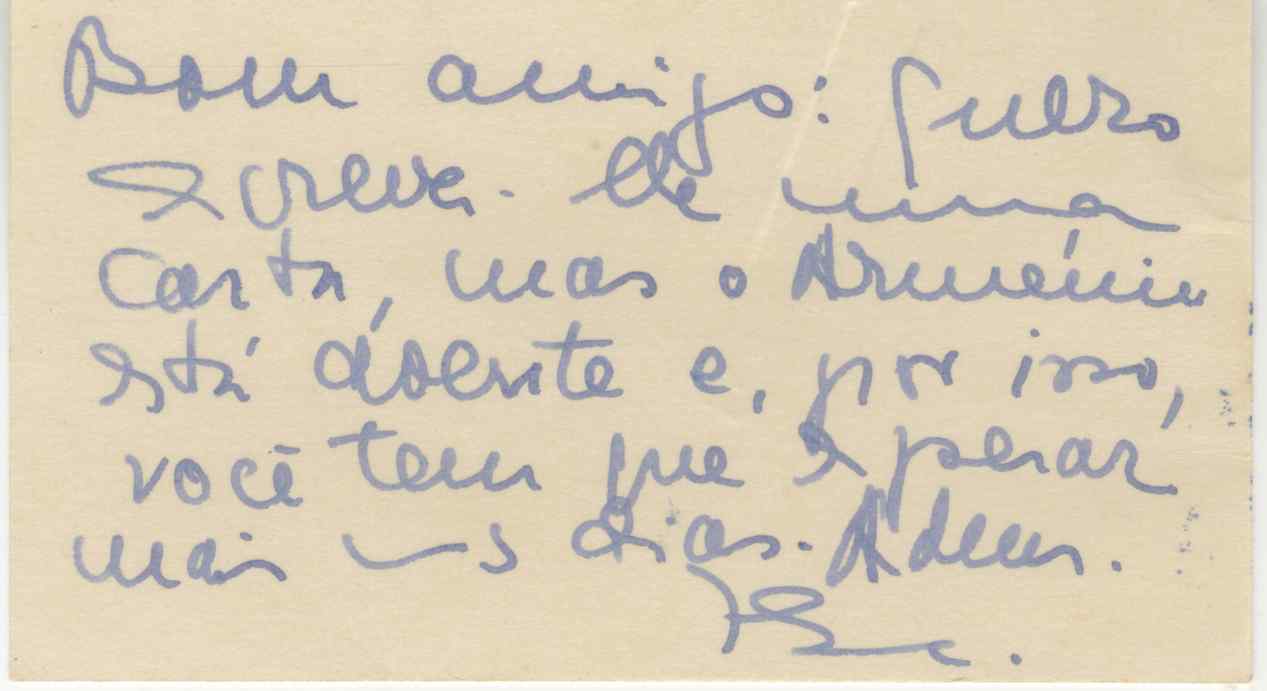 Bom amigo: quero
escrever-lhe uma
carta, mas o Arménio
está doente e, por isso,
você tem que esperar
mais uns dias. Adeus.